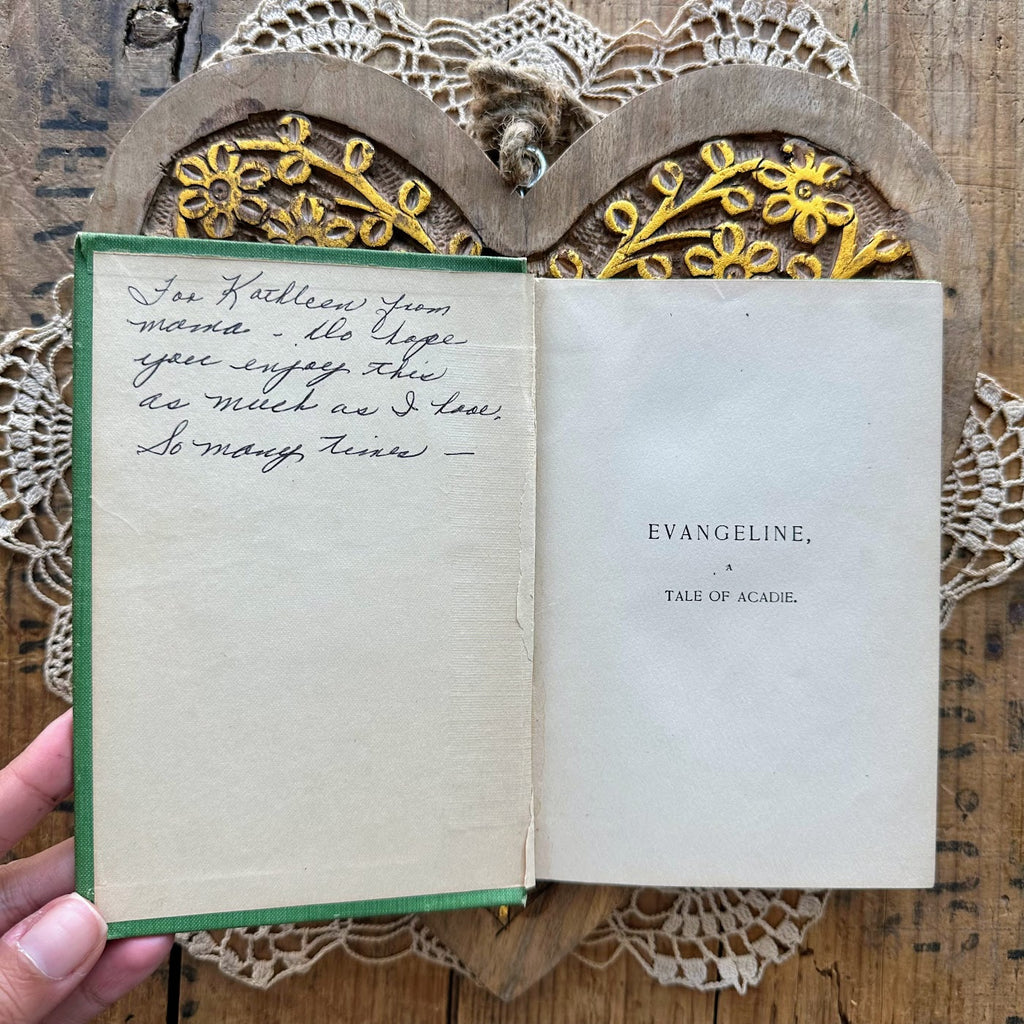 For Kathleen from
mama - Do hope
you enjoy this
as much as I have.
So many times —
EVANGELINE,
A
TALE OF ACADIE.